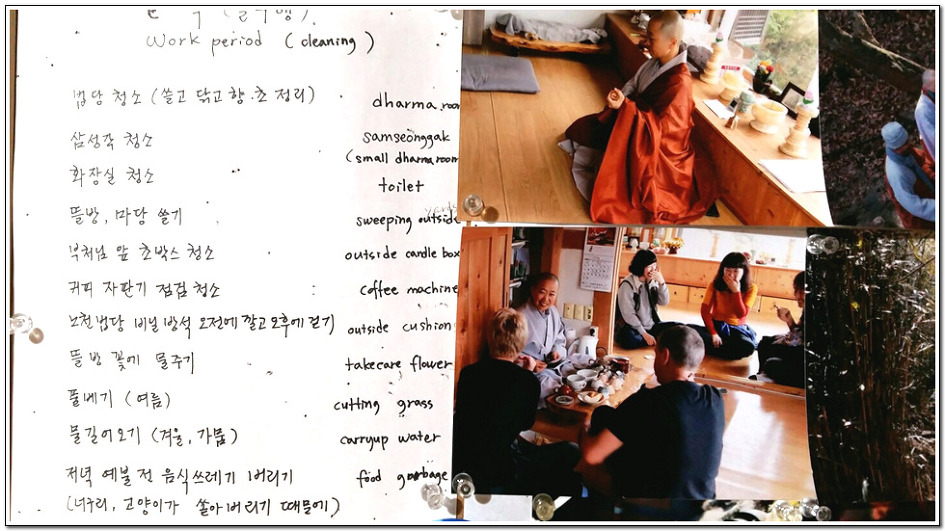 Work period (cleaning)
법당 청소 (쓸고 닦고 향·초 정리) dharma room
삼성각 청소 samseonggak
(small dharma room
화장실 청소 toilet
뜰방, 마당 쓸기 sweeping outside
부처님 앞 초박스 청소 outside candle box
커피 자판기 점검 청소 coffee machine
노천법당 비닐 방석 오전에 깔고 오후에 걷기 outside cushion
뜰방 꽃에 물주기 takecare flower
풀베기 (여름) cutting grass
물길어오기 (겨울, 가뭄) carryup water
저녁 예불 전 음식쓰레기 버리기 food garbage
(너구리, 고양이가 쏟아버리기 때문에)